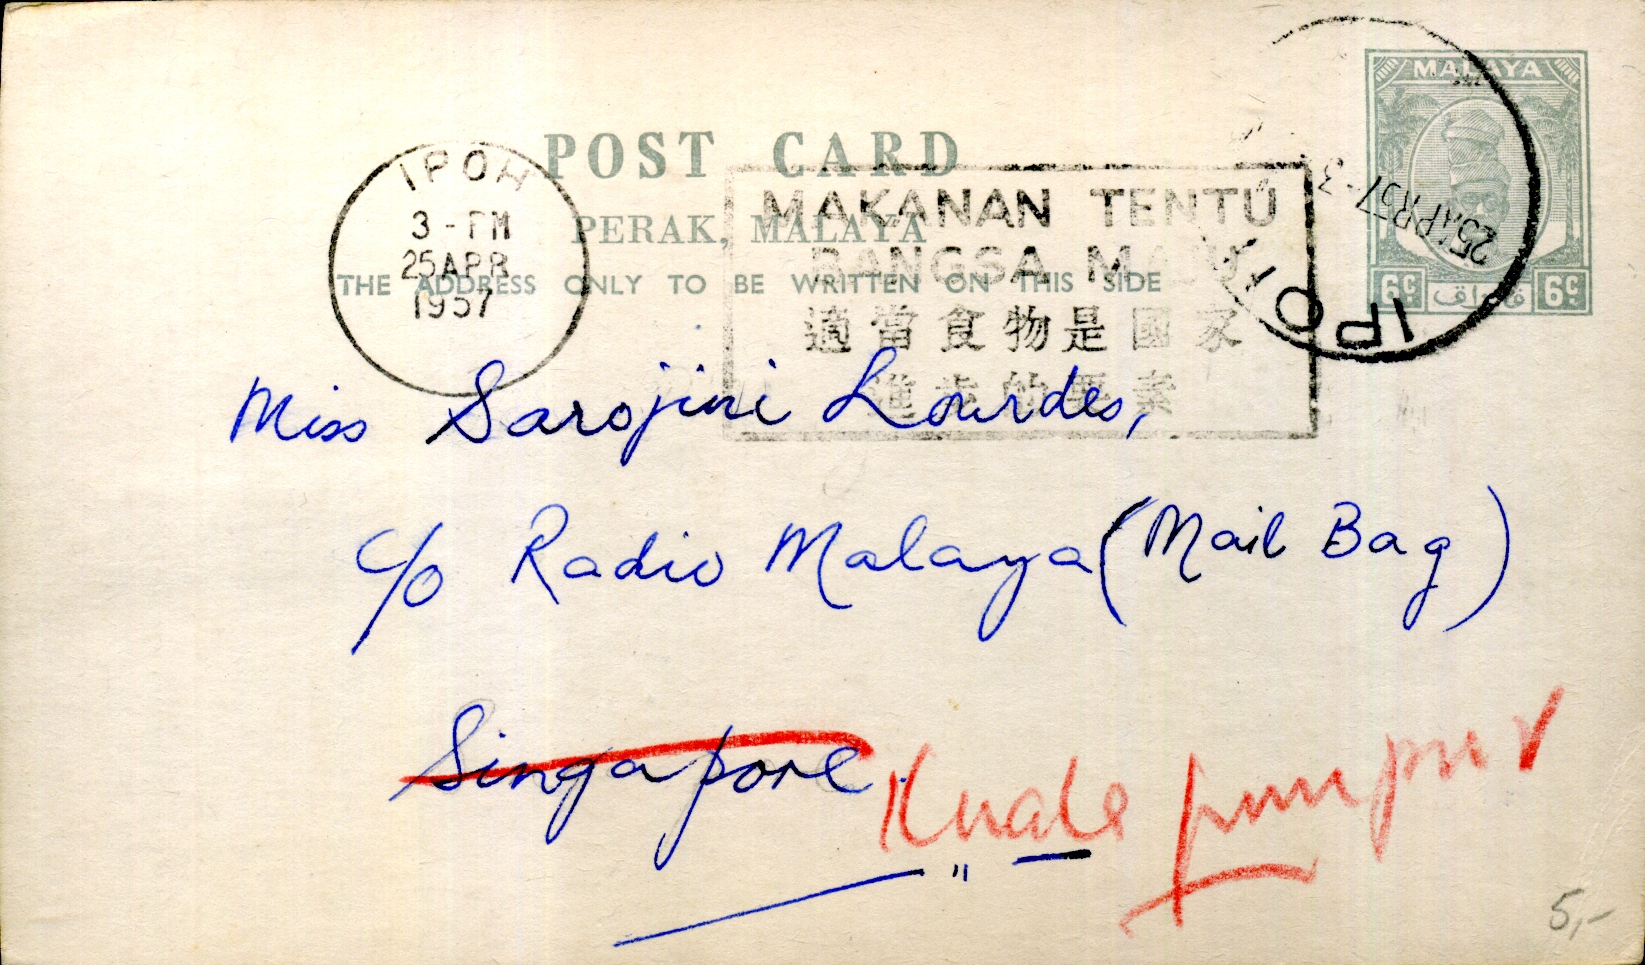 MALAYA
POST CARD
PERAK, MALAYA
THE ADDRESS ONLY TO BE WRITTEN ON THIS SIDE
6c. قراق 6c.
IPOH
3-PM
25APR
1957
MAKANAN TENTU
BANGSA MAJU
適當食物是國家
進步的要素
IPOH
3-
25APR57
Miss Sarojini Lourdes,
c/o Radio Malaya (Mail Bag)
Singapore. Kuala Lumpur
5,-